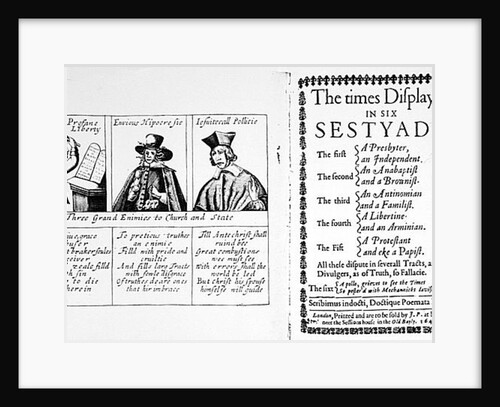 Profane
Liberty
Envious Hipocresie
Iesuiticall Pollitie
Three Grand Enimies to Church and State
To pretious truthes
an enimie
Filld with pride and
crultie
And fills large Tracts
with false disgrace
Of truthes deare ones
that hir imbrace
Till Antechrist shall
ruind bee
Great combustions
wee must see
With errors shall the
world be led
But Christ his spouse
himselfe will guide
The times Display
IN SIX
SESTYAD
The first { A Presbyter,
an Independent.
The second { An Anabaptist
and a Brownist.
The third { An Antinomian
and a Familist.
The fourth { A Libertine
and an Arminian.
The Fift { A Protestant
and eke a Papist.
All these dispute in severall Tracts, a
Divulgers, as of Truth, so Fallacie.
The sixt { Apollo, grieving to see the Times
So pester'd with Mechanicks
Scribimus indocti, Doctique Poemata
London, Printed and are to be sold by J. P. at
neer the Sessions house in the Old Bayly. 164